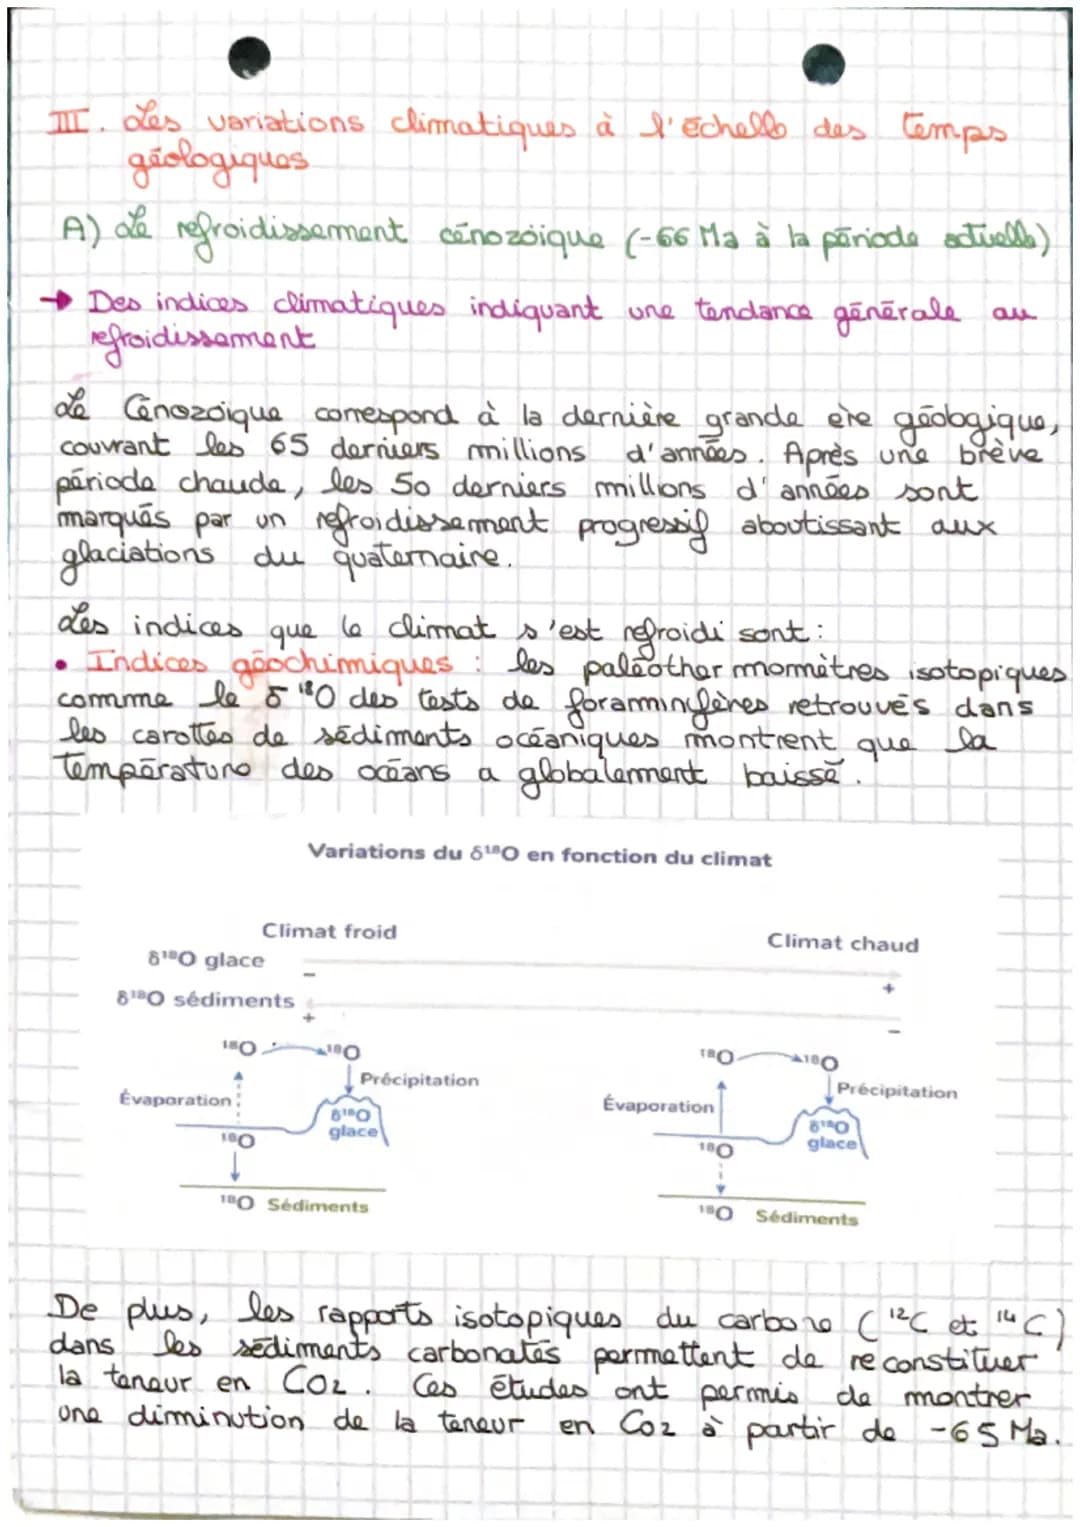 III. Les variations climatiques à l'échelle des temps
géologiques
A) Le refroidissement cénozoïque (-66 Ma à la période actuelle)
→ Des indices climatiques indiquant une tendance générale au
refroidissement
Le Cénozoïque correspond à la dernière grande ère géologique,
couvrant les 65 derniers millions d'années. Après une brève
période chaude, les 50 derniers millions d'années sont
marqués par un refroidissement progressif aboutissant aux
glaciations du quaternaire.
Les indices que le climat s'est refroidi sont :
• Indices géochimiques : les paléothermomètres isotopiques
comme le δ¹⁸O des tests de foraminifères retrouvés dans
les carottes de sédiments océaniques montrent que la
température des océans a globalement baissé.
Variations du δ¹⁸O en fonction du climat
Climat froid Climat chaud
δ¹⁸O glace - +
δ¹⁸O sédiments + -
¹⁸O ¹⁸O ¹⁸O ¹⁸O
Précipitation Précipitation
Évaporation Évaporation
δ¹⁸O δ¹⁸O
glace glace
¹⁸O ¹⁸O
¹⁸O Sédiments ¹⁸O Sédiments
De plus, les rapports isotopiques du carbone (¹²C et ¹⁴C)
dans les sédiments carbonatés permettent de reconstituer
la teneur en CO2. Ces études ont permis de montrer
une diminution de la teneur en CO2 à partir de -65 Ma.